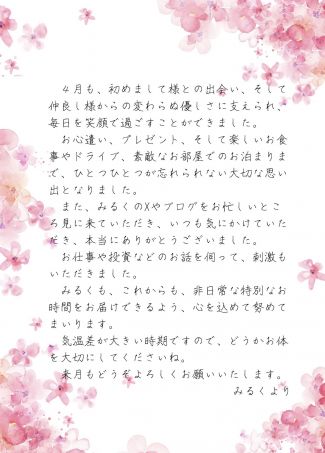 ４月も、初めまして様との出会い、そして
仲良し様からの変わらぬ優しさに支えられ、
毎日を笑顔で過ごすことができました。
お心遣い、プレゼント、そして楽しいお食
事やドライブ、素敵なお部屋でのお泊まりま
で、ひとつひとつが忘れられない大切な思い
出となりました。
また、みるくのXやブログをお忙しいとこ
ろ見に来ていただき、いつも気にかけていた
だき、本当にありがとうございました。
お仕事や投資などのお話を伺って、刺激も
いただきました。
みるくも、これからも、非日常な特別なお
時間をお届けできるよう、心を込めて努めて
まいります。
気温差が大きい時期ですので、どうかお体
を大切にしてくださいね。
来月もどうぞよろしくお願いいたします。
みるくより